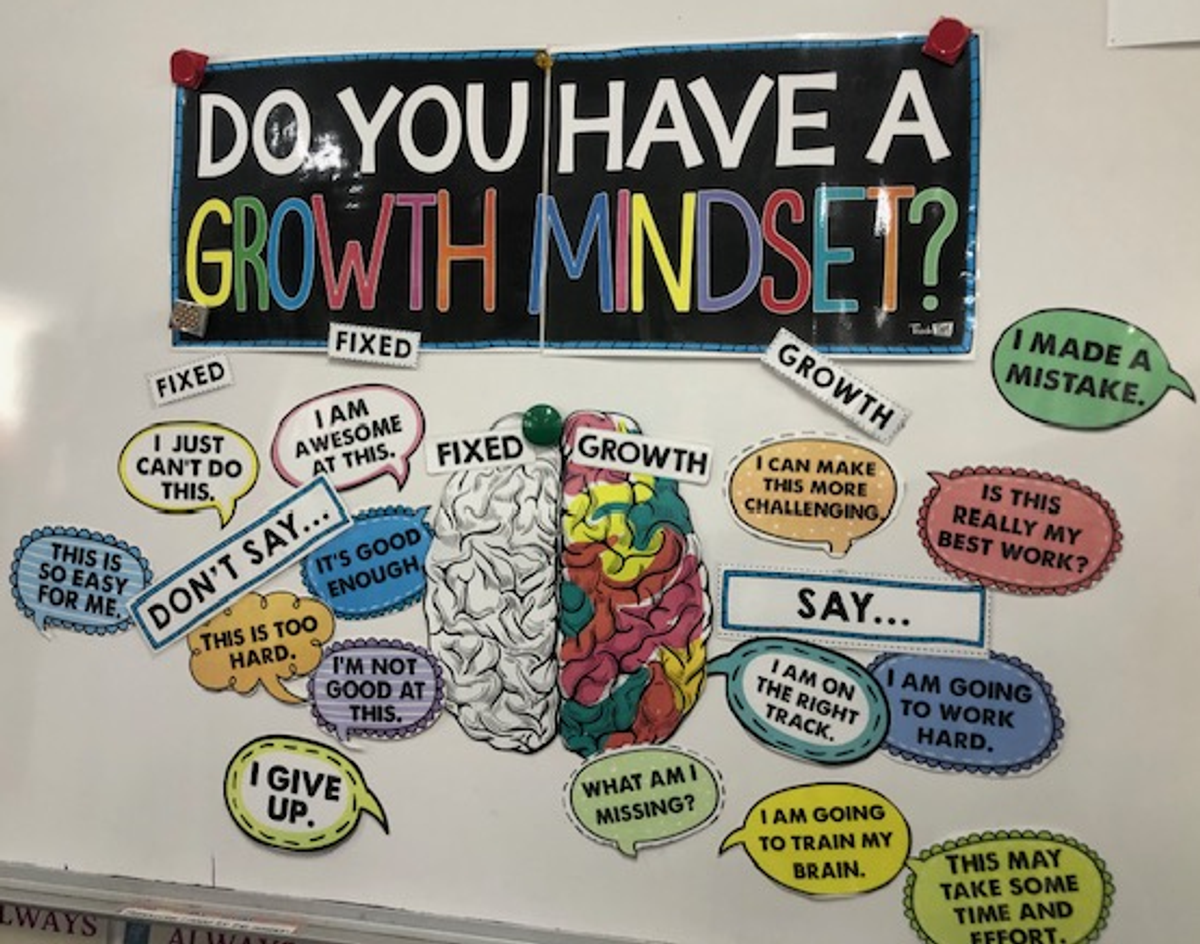 DO YOU HAVE A
GROWTH MINDSET?
FIXED
FIXED
GROWTH
I MADE A
MISTAKE.
I JUST
CAN'T DO
THIS.
I AM
AWESOME
AT THIS.
FIXED
GROWTH
I CAN MAKE
THIS MORE
CHALLENGING.
IS THIS
REALLY MY
BEST WORK?
THIS IS
SO EASY
FOR ME.
DON'T SAY...
IT'S GOOD
ENOUGH.
SAY...
THIS IS TOO
HARD.
I'M NOT
GOOD AT
THIS.
I AM ON
THE RIGHT
TRACK.
I AM GOING
TO WORK
HARD.
I GIVE
UP.
WHAT AM I
MISSING?
I AM GOING
TO TRAIN MY
BRAIN.
THIS MAY
TAKE SOME
TIME AND
EFFORT.
LWAYS
ALWAYS